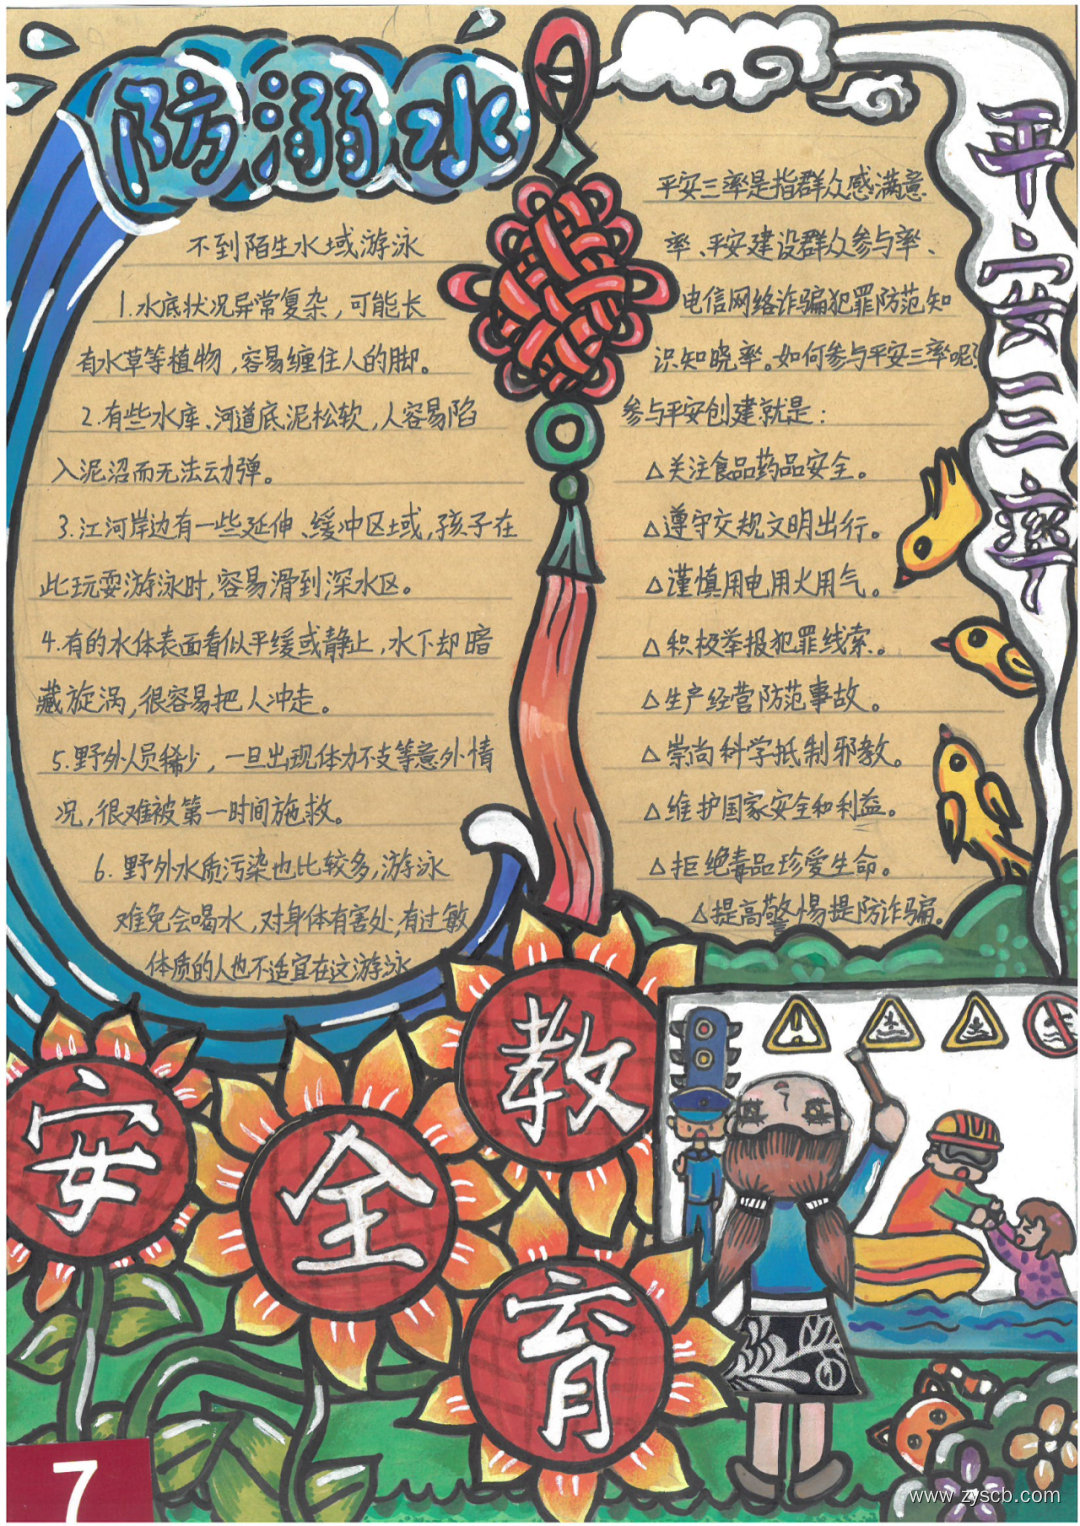 防溺水
不到陌生水域游泳
1.水底状况异常复杂，可能长
有水草等植物，容易缠住人的脚。
2.有些水库、河道底泥松软，人容易陷
入泥沼而无法动弹。
3.江河岸边有一些延伸、缓冲区域，孩子在
此玩耍游泳时，容易滑到深水区。
4.有的水体表面看似平缓或静止，水下却暗
藏旋涡，很容易把人冲走。
5.野外人员稀少，一旦出现体力不支等意外情
况，很难被第一时间施救。
6.野外水质污染也比较多，游泳
难免会喝水，对身体有害处，有过敏
体质的人也不适宜在这游泳
平安三率
平安三率是指群众感满意
率、平安建设群众参与率、
电信网络诈骗犯罪防范知
识知晓率。如何参与平安三率呢？
参与平安创建就是：
△关注食品药品安全。
△遵守交规文明出行。
△谨慎用电用火用气。
△积极举报犯罪线索。
△生产经营防范事故。
△崇尚科学抵制邪教。
△维护国家安全和利益。
△拒绝毒品珍爱生命。
△提高警惕提防诈骗。
安全教育
7
www.zyscb.com